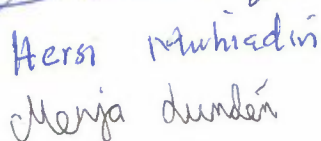 Hersi Muhiadin
Merja Lundén